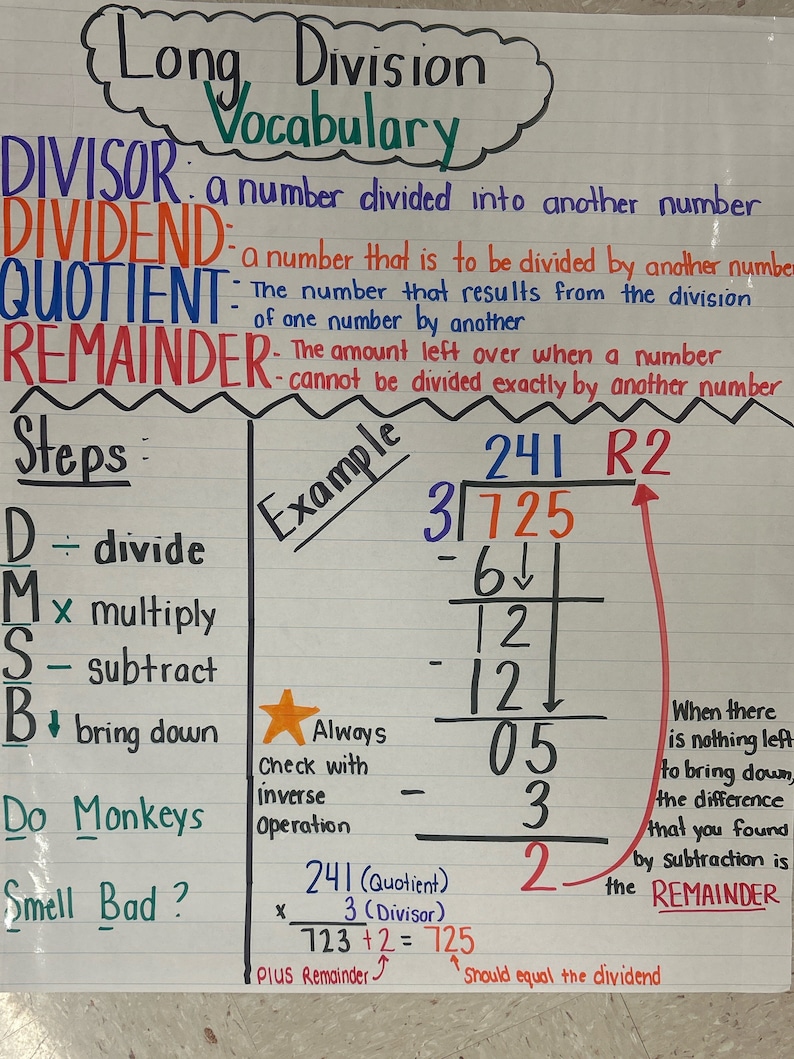 Long Division
Vocabulary
DIVISOR: a number divided into another number
DIVIDEND: a number that is to be divided by another number
QUOTIENT: The number that results from the division
of one number by another
REMAINDER- The amount left over when a number
-cannot be divided exactly by another number
Steps:
D ÷ divide
M x multiply
S - subtract
B ↓ bring down
Do Monkeys
Smell Bad?
Example
241 R2
3 725
- 6
12
- 12
05
- 3
2
Always
check with
inverse
operation
When there
is nothing left
to bring down,
the difference
that you found
by subtraction is
the REMAINDER
241 (Quotient)
x 3 (Divisor)
723 + 2 = 725
Plus Remainder
should equal the dividend